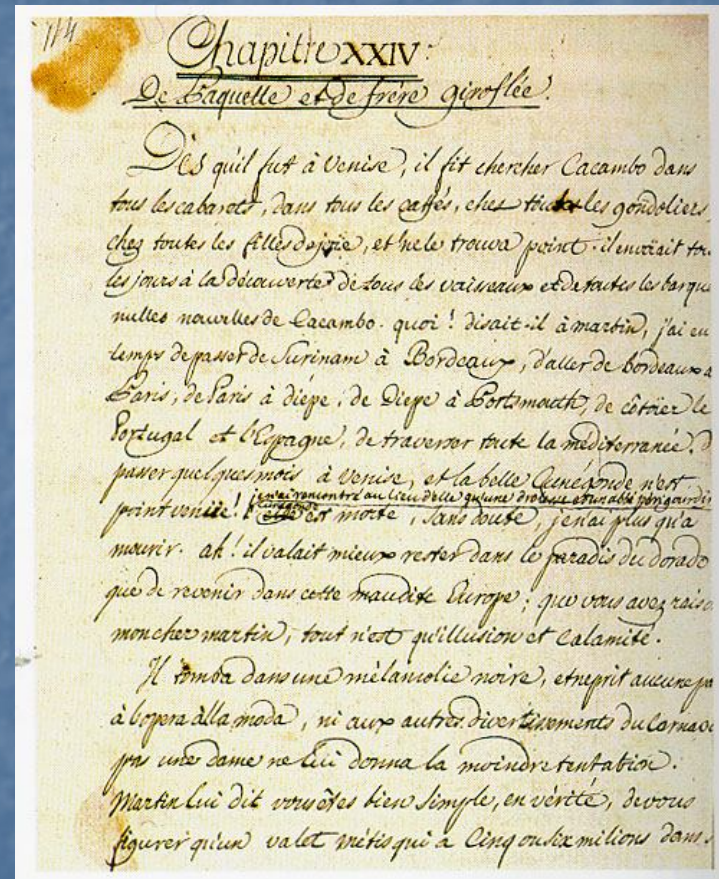 114
Chapitre XXIV.
De Paquette et de frère giroflée.
Dès qu'il fut à Venise, il fit chercher Cacambo dans
tous les cabarots, dans tous les caffés, chez toutes les gondoliers,
chez toutes les filles de joie, et ne le trouva point. il envoiait tou
les jours à la découverte de tous les vaisseaux et de toutes les barque
nulles nouvelles de Cacambo. quoi! disait-il à martin, j'ai eu
temps de passer de Surinam à Bordeaux, d'aller de bordeaux a
Paris, de Paris à diépe, de Diepe à Portsmouth, de côtoier le
Portugal et l'Espagne, de traverser toute la méditerranée. d
passer quelques mois à Venise, et la belle Cunégonde n'est
je n'ai rencontré au lieu d'elle qu'une drolesse et un abbé périgourdin
point venüe! Cunegonde est morte, sans doute, je n'ai plus qu'a
mourir. ah! il valait mieux rester dans le paradis du dorado
que de revenir dans cette maudite Europe; que vous avez raiso
mon cher martin, tout n'est qu'illusion et calamité.
Il tomba dans une mélancolie noire, et ne prit aucune pa
à l'opera alla moda, ni aux autres divertissements du Carnava
pas une dame ne lui donna la moindre tentation.
Martin lui dit vous êtes bien simple, en vérité, de vous
figurer qu'un valet métis qui a Cinq ou six milions dans s